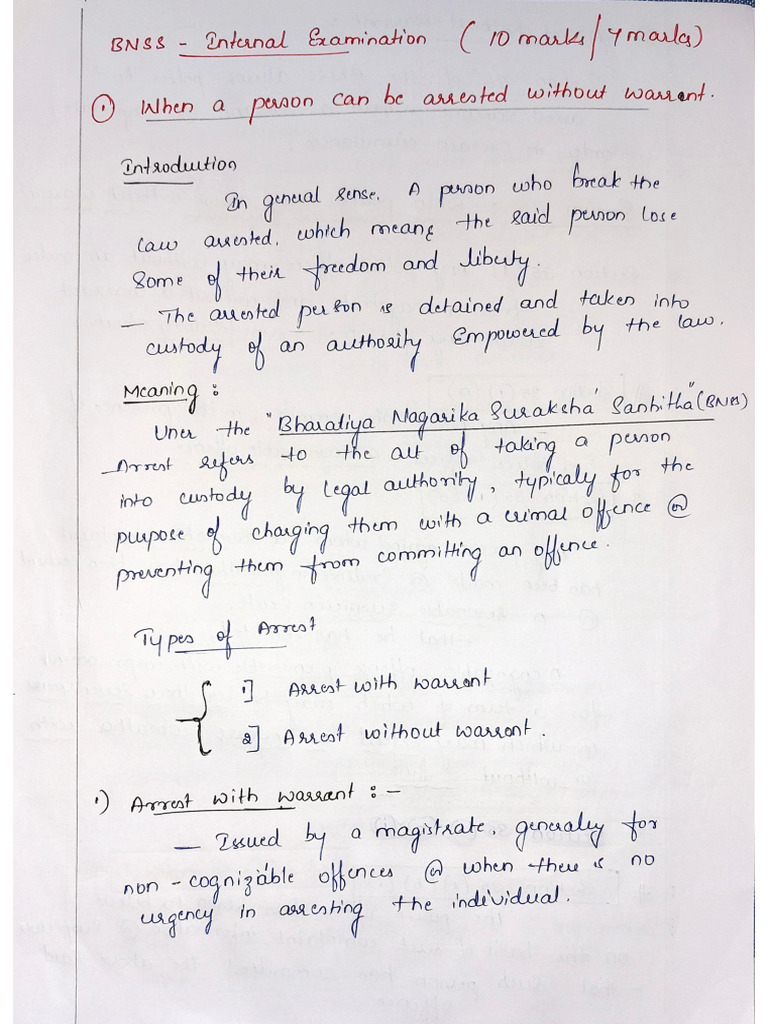 BNSS - Internal Examination ( 10 marks / 7 marks)
① When a person can be arrested without warrent.
Introduction
In general sense. A person who break the
law arrested, which means the said person lose
some of their freedom and liberty.
— The arrested person is detained and taken into
custody of an authority Empowered by the law.
Meaning :
Uner the "Bharatiya Nagarika Suraksha Sanhitha" (BNSS)
— Arrest refers to the act of taking a person
into custody by legal authority, typicaly for the
purpose of charging them with a crimal offence @
preventing them from committing an offence.
Types of Arrest
1] Arrest with warrant
2] Arrest without warrant.
1) Arrest with warrant : —
— Issued by a magistrate, generally for
non - cognizable offences @ when there is no
urgency in arresting the individual.